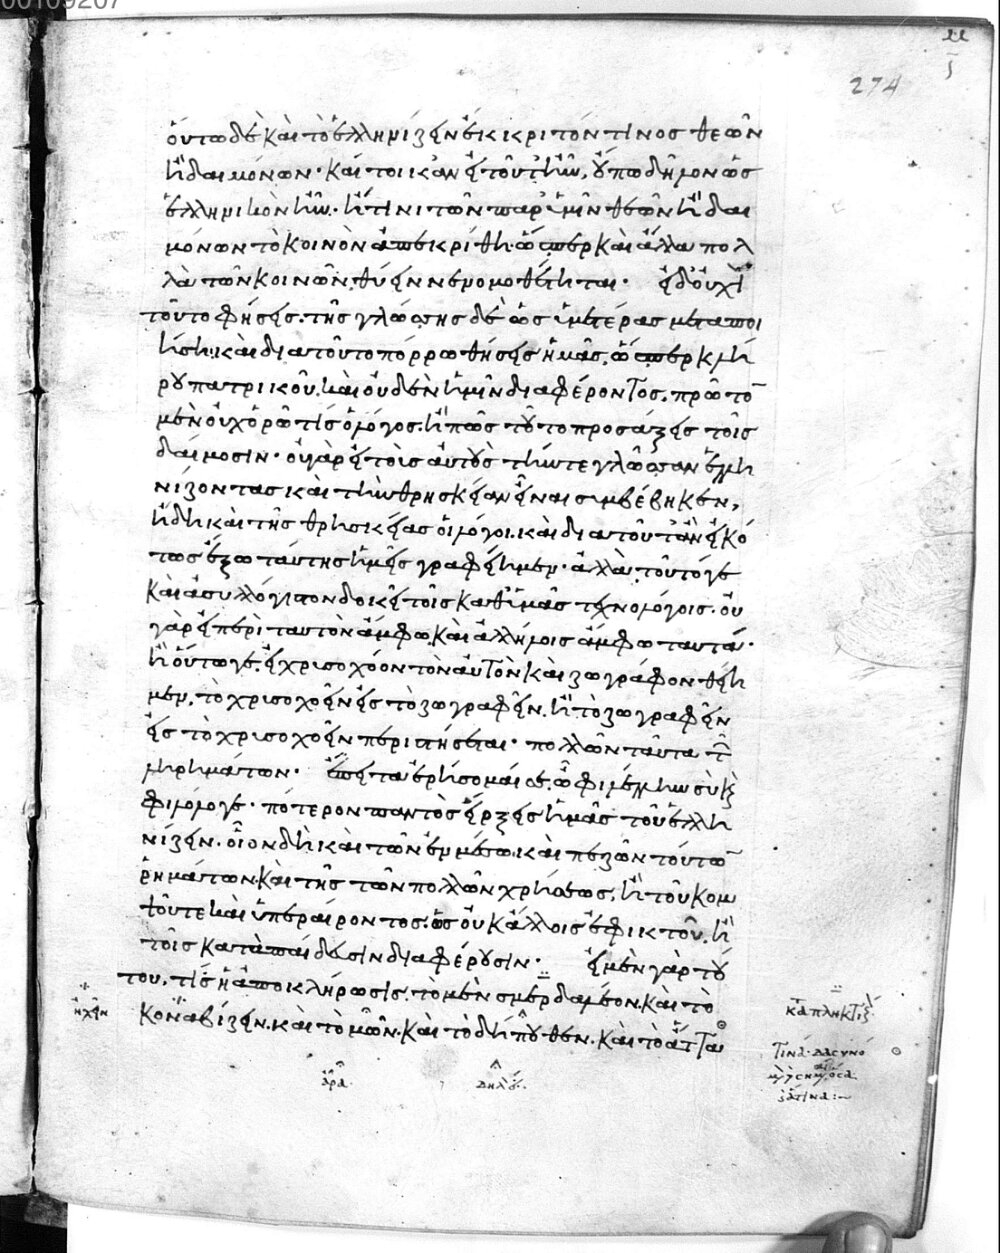 00109207
μ
ϛ
274
οὕτω δὲ καὶ τὸ ἑλληνίζειν ἔκκριτόν τινος θεῶν
ἢ δαιμόνων· καίτοι κἂν εἰ τοῦτ' ἦν, οὔπω δῆλον ὡς
ἑλληνικὸν ἦν. ἢ τίνι τῶν παρ' ὑμῖν θεῶν ἢ δαι
μόνων τὸ κοινὸν ἀπεκρίθη ὥσπερ καὶ ἄλλα πολ
λὰ τῶν κοινῶν θύειν νενομοθέτηται· εἰ δ' οὐχὶ
τοῦτο φήσεις. τῆς γλώσσης δὲ ὡς ἡμετέρας μεταποι
ήσῃ. καὶ διατοῦτο πόρρω θήσεις ἡμᾶς, ὥσπερ κλή
ρου πατρικοῦ, καὶ οὐδὲν ἡμῖν διαφέροντος. πρῶτον
μὲν οὐχ ὁρῶ τίς ὁ λόγος. ἢ πῶς τοῦτο προσάξεις τοῖς
δαίμοσιν· οὐ γὰρ εἰ τοὺς αὐτοὺς τήν τε γλῶσσαν ἑλλη
νίζοντας καὶ τὴν θρησκείαν εἶναι συμβέβηκεν,
ἤδη καὶ τῆς θρησκείας οἱ λόγοι. καὶ διατοῦτ' ἂν εἰκό
τως ἔξω ταύτης ἡμεῖς γραφείημεν· ἀλλὰ τοῦτό γε
καὶ ἀσυλλόγιστον δοκεῖ τοῖς καθ' ὑμᾶς τεχνολόγοις. οὐ
γὰρ εἰ περὶ ταυτὸν ἄμφω, καὶ ἀλλήλοις ἄμφω ταυτά·
ἢ οὕτω γε, εἰ χρυσοχόον τὸν αὐτὸν καὶ ζωγράφον θείη
μεν, τὸ χρυσοχοεῖν εἰς τὸ ζωγραφεῖν. ἢ τὸ ζωγραφεῖν
εἰς τὸ χρυσοχοεῖν περιστήσεται· πολλῶν ταῦτα τῶν
ληρημάτων· ἔπειτα ἐρήσομαί σε, ὦ φιλέλλην σὺ καὶ
φιλόλογε· πότερον παντὸς εἴρξεις ἡμᾶς τοῦ ἑλλη
νίζειν. οἷον δὴ καὶ τῶν ἐν μέσῳ. καὶ πεζῶν τούτων
ῥημάτων. καὶ τῆς τῶν πολλῶν χρήσεως, ἢ τοῦ κομ
ψοῦ τε καὶ ὑπεραίροντος. ὡς οὐκ ἄλλοις ἐφικτοῦ. ἢ
τοῖς κατὰ παίδευσιν διαφέρουσιν· εἰ μὲν γὰρ τού
του, τίς ἡ ἀποκλήρωσις. τὸ μὲν σμερδαλέον. καὶ τὸ
κοναβίζειν. καὶ τὸ μῶν. καὶ τὸ δήπουθεν. καὶ τὸ ἄττα
ἠχεῖν
καταπληκτικόν
τινά· δασυνό
ἅτινα:~
ἆρα·